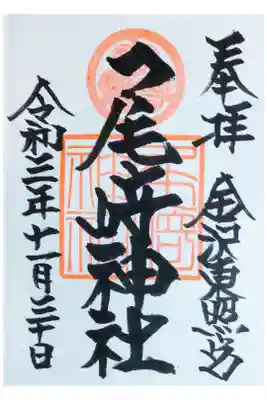 奉拝 金沢東照宮
尾﨑神社
令和三年十一月三十日